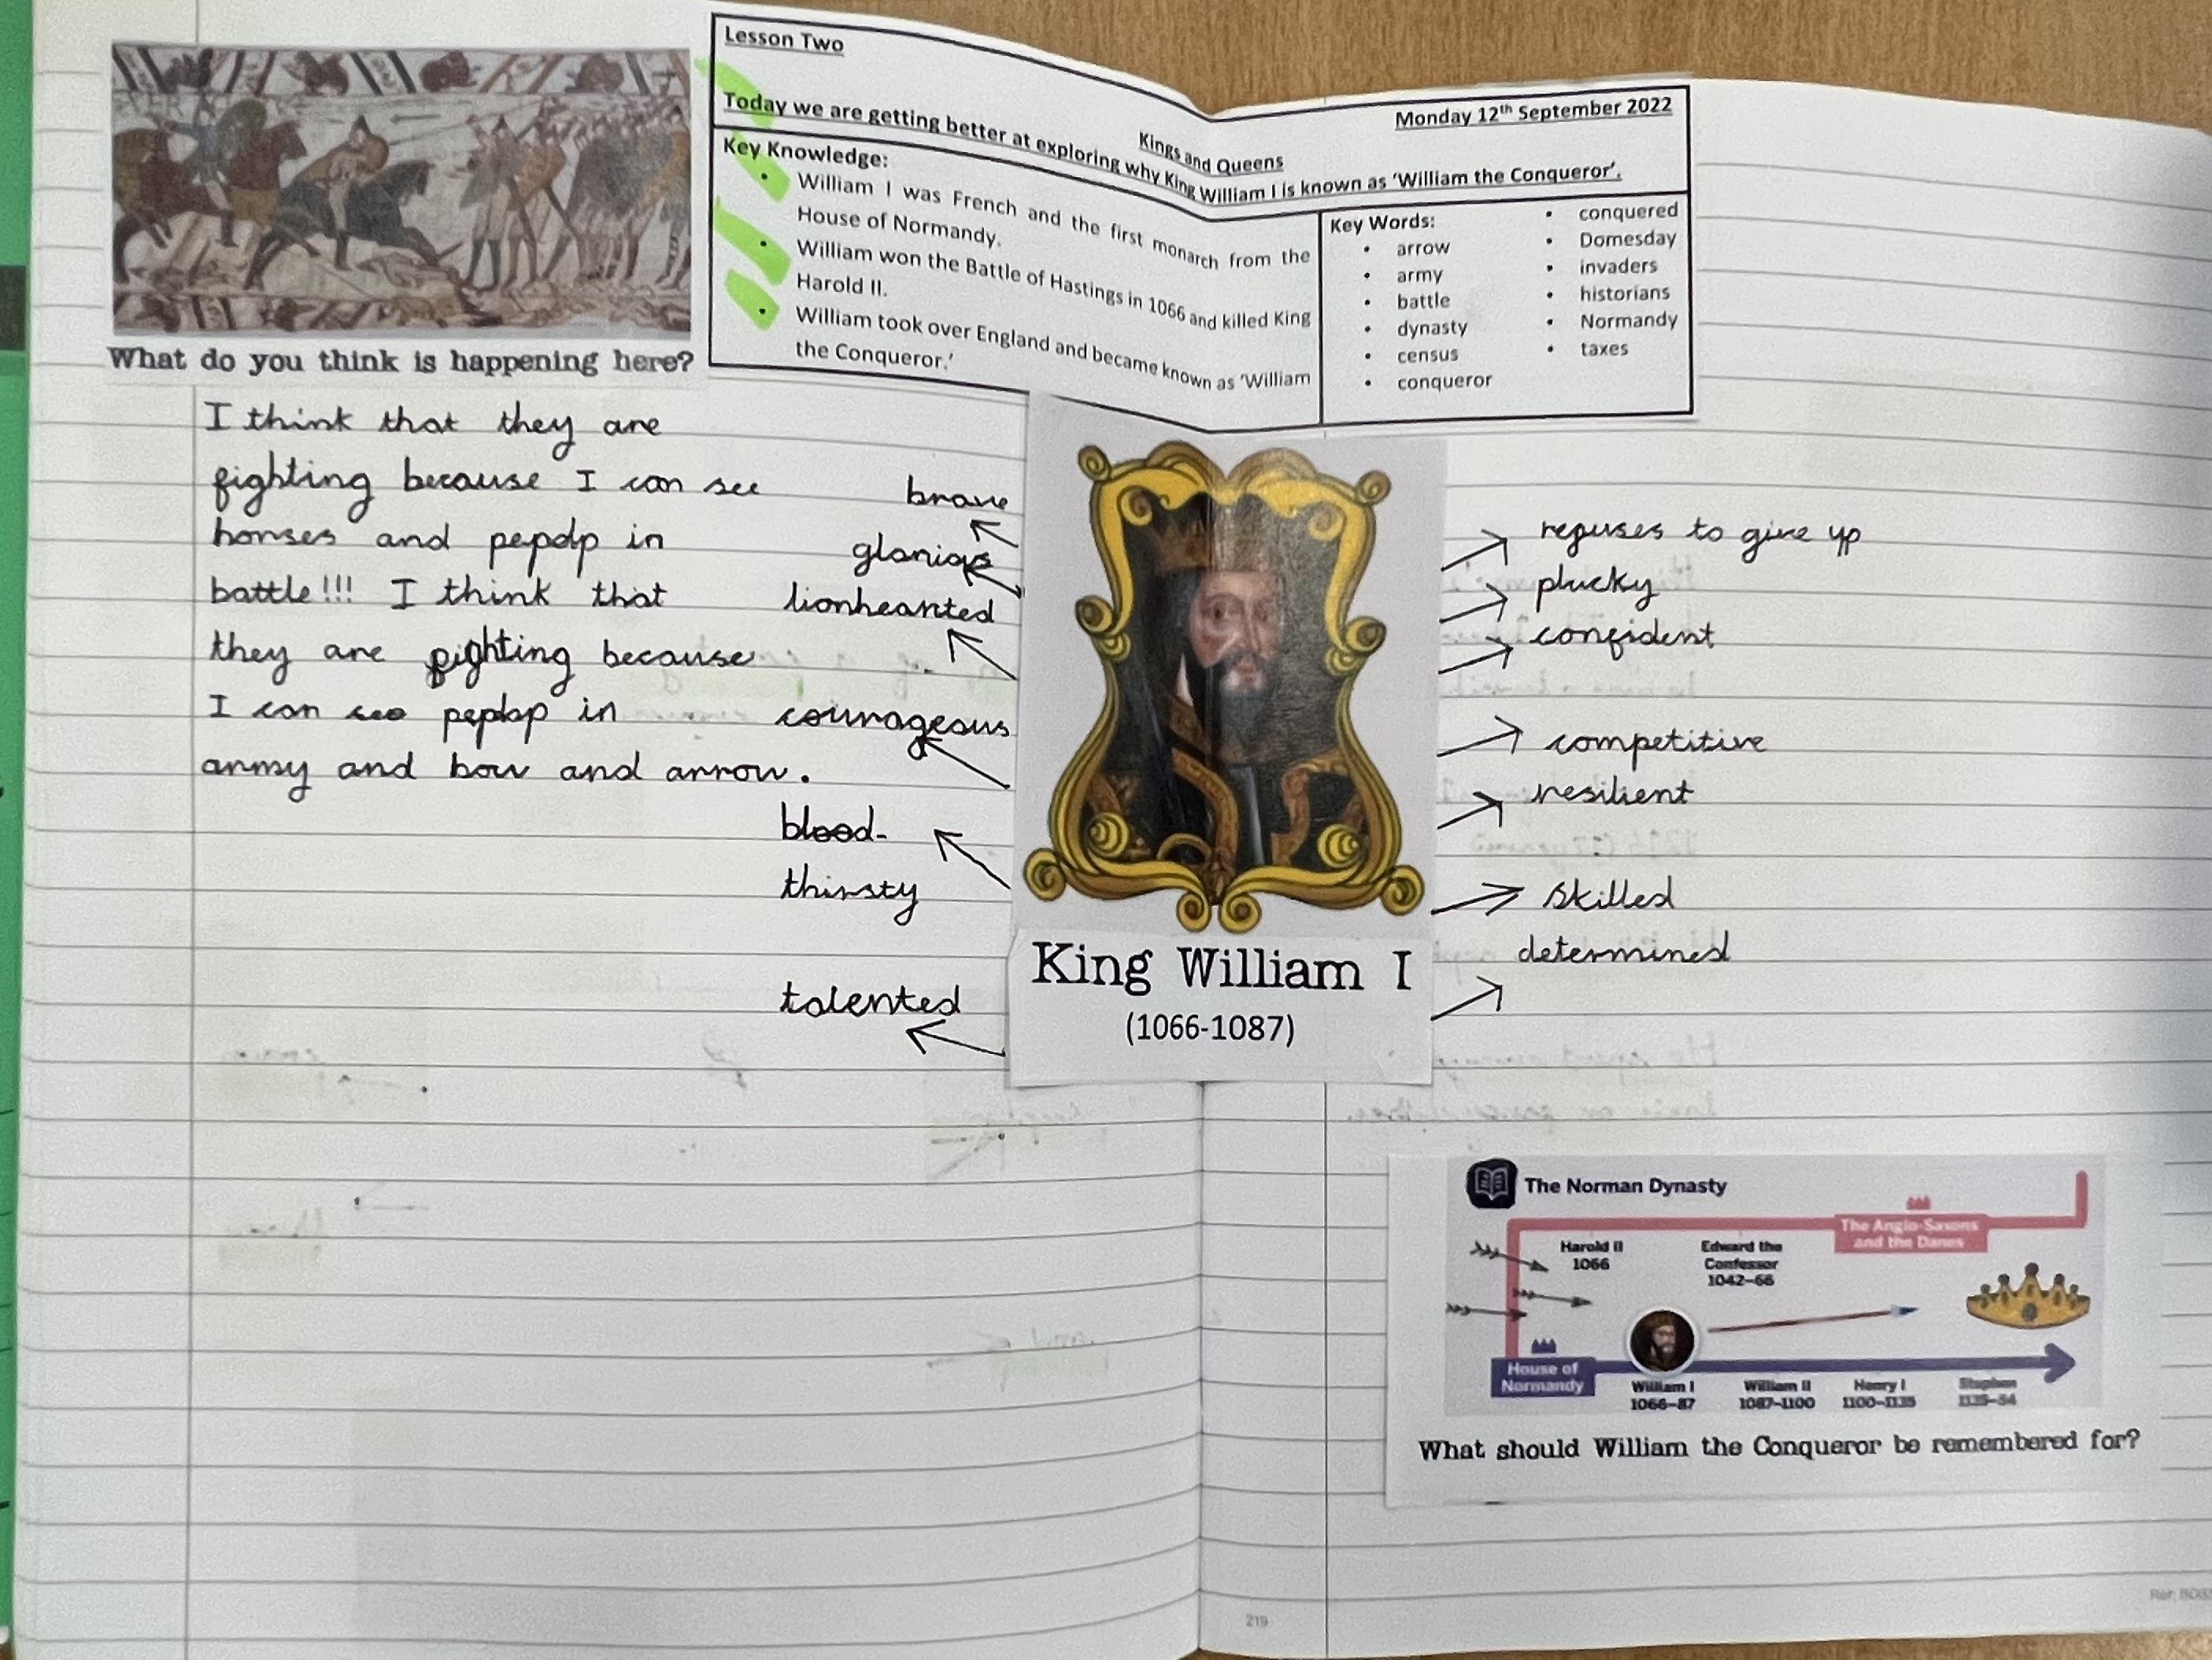 Lesson Two
Monday 12th September 2022
Kings and Queens
Today we are getting better at exploring why King William I is known as 'William the Conqueror'.
Key Knowledge:
• William I was French and the first monarch from the
House of Normandy.
• William won the Battle of Hastings in 1066 and killed King
Harold II.
• William took over England and became known as 'William
the Conqueror.'
Key Words:
• arrow
• army
• battle
• dynasty
• census
• conqueror
• conquered
• Domesday
• invaders
• historians
• Normandy
• taxes
What do you think is happening here?
I think that they are
fighting because I can see
horses and pepolp in
battle!!! I think that
they are fighting because
I can see peplop in
army and bow and arrow.
brave
glorious
lionhearted
courageous
blood-
thirsty
talented
refuses to give up
plucky
confident
competitive
resilient
skilled
determined
King William I
(1066-1087)
The Norman Dynasty
The Anglo-Saxons
and the Danes
Harold II
1066
Edward the
Confessor
1042–66
House of
Normandy
William I
1066–87
William II
1087–1100
Henry I
1100–1135
Stephen
1135–54
What should William the Conqueror be remembered for?
219